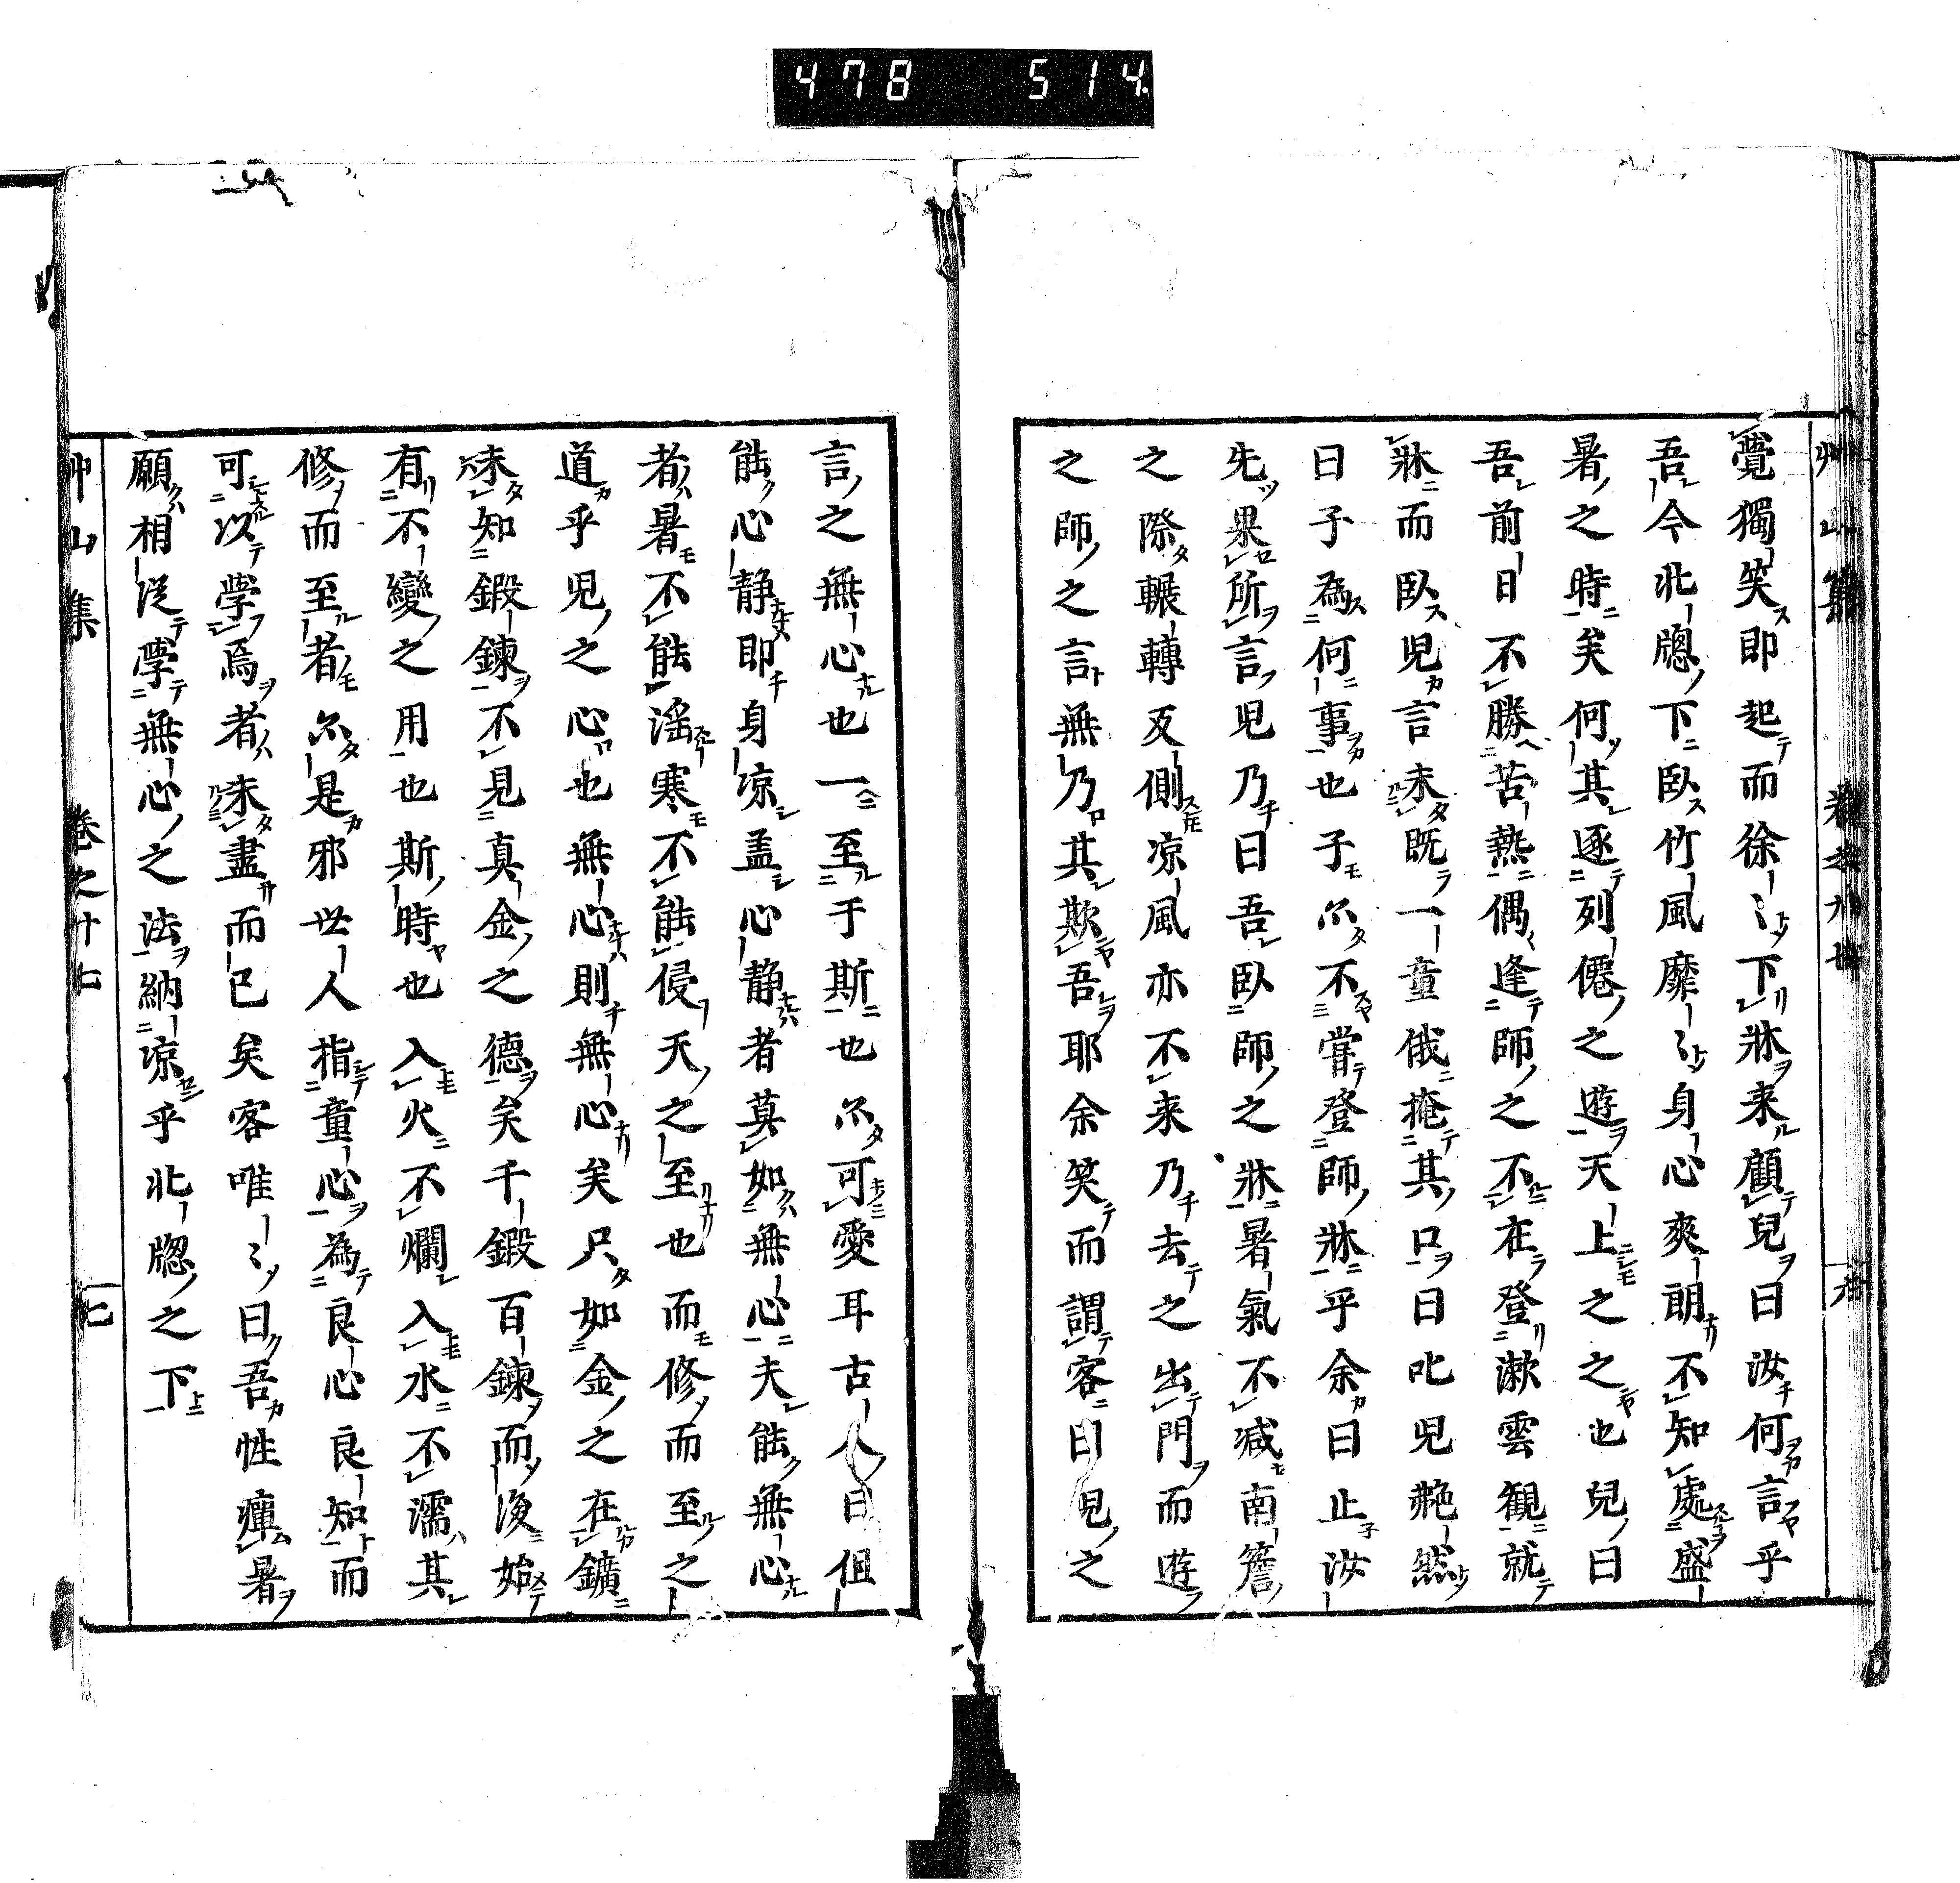 478 514
覺獨笑即起而徐〻下牀来顧兒曰汝何言乎
吾今北牕之下臥竹風靡〻身心爽朗不知處盛
暑之時矣何其逐列僊之遊天上之之也兒曰
吾前日不勝苦熱偶逢師之不在登漱雲観就
牀而臥児言未既一童俄掩其口曰叱児艴然
曰予為何事也子尓不嘗登師牀乎余曰止汝
先果所言児乃曰吾臥師之牀暑氣不减南簷
之際輾轉反側凉風亦不来乃去之出門而遊
之師之言無乃其欺吾耶余笑而謂客曰児之
言之無心也一至于斯也尓可愛耳古人曰但
能心静即身凉盖心静者莫如無心夫能無心
者暑不能滛寒不能侵天之至也而修而至之
道乎児之心也無心則無心矣只如金之在鑛
未知鍛鍊不見真金之德矣千鍛百鍊而後始
有不變之用也斯時也入火不爛入水不濡其
修而至者尓是邪世人指童心為良心良知而
可以學焉者未盡而已矣客唯〻曰吾性癉暑
願相従學無心之法納凉乎北牎之下
艸山集 巻之十七